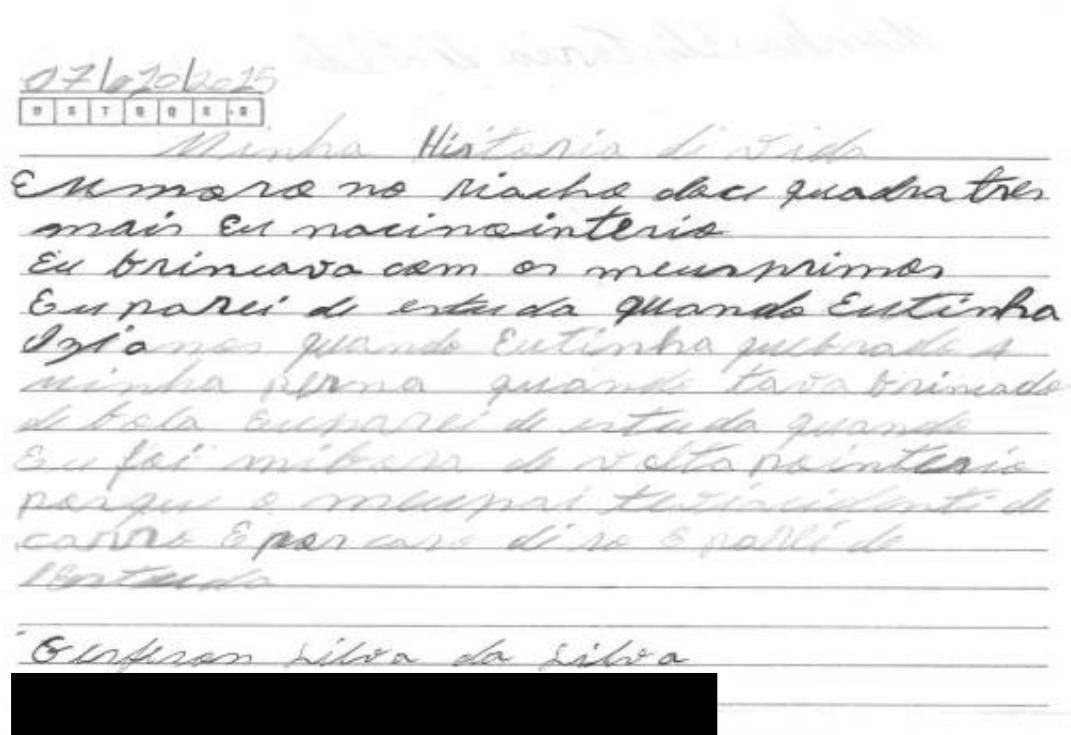 07/10/2025
D S T Q Q S S
Minha Historia di vida
Eu moro no riacho doci quadra tres
mais Eu nacinointerio
Eu brincava com os meusprimos
Euparei di estuda quando Eutinha
anos quando Eutinha quebrado a
minha perna quando tava brincado
de bola Euparei di estuda quando
Eu foi mibora di volta pointerio
porqui o meupai teviacidenti di
carro E porcaso diso E parei di
estuda
Silva da Silva